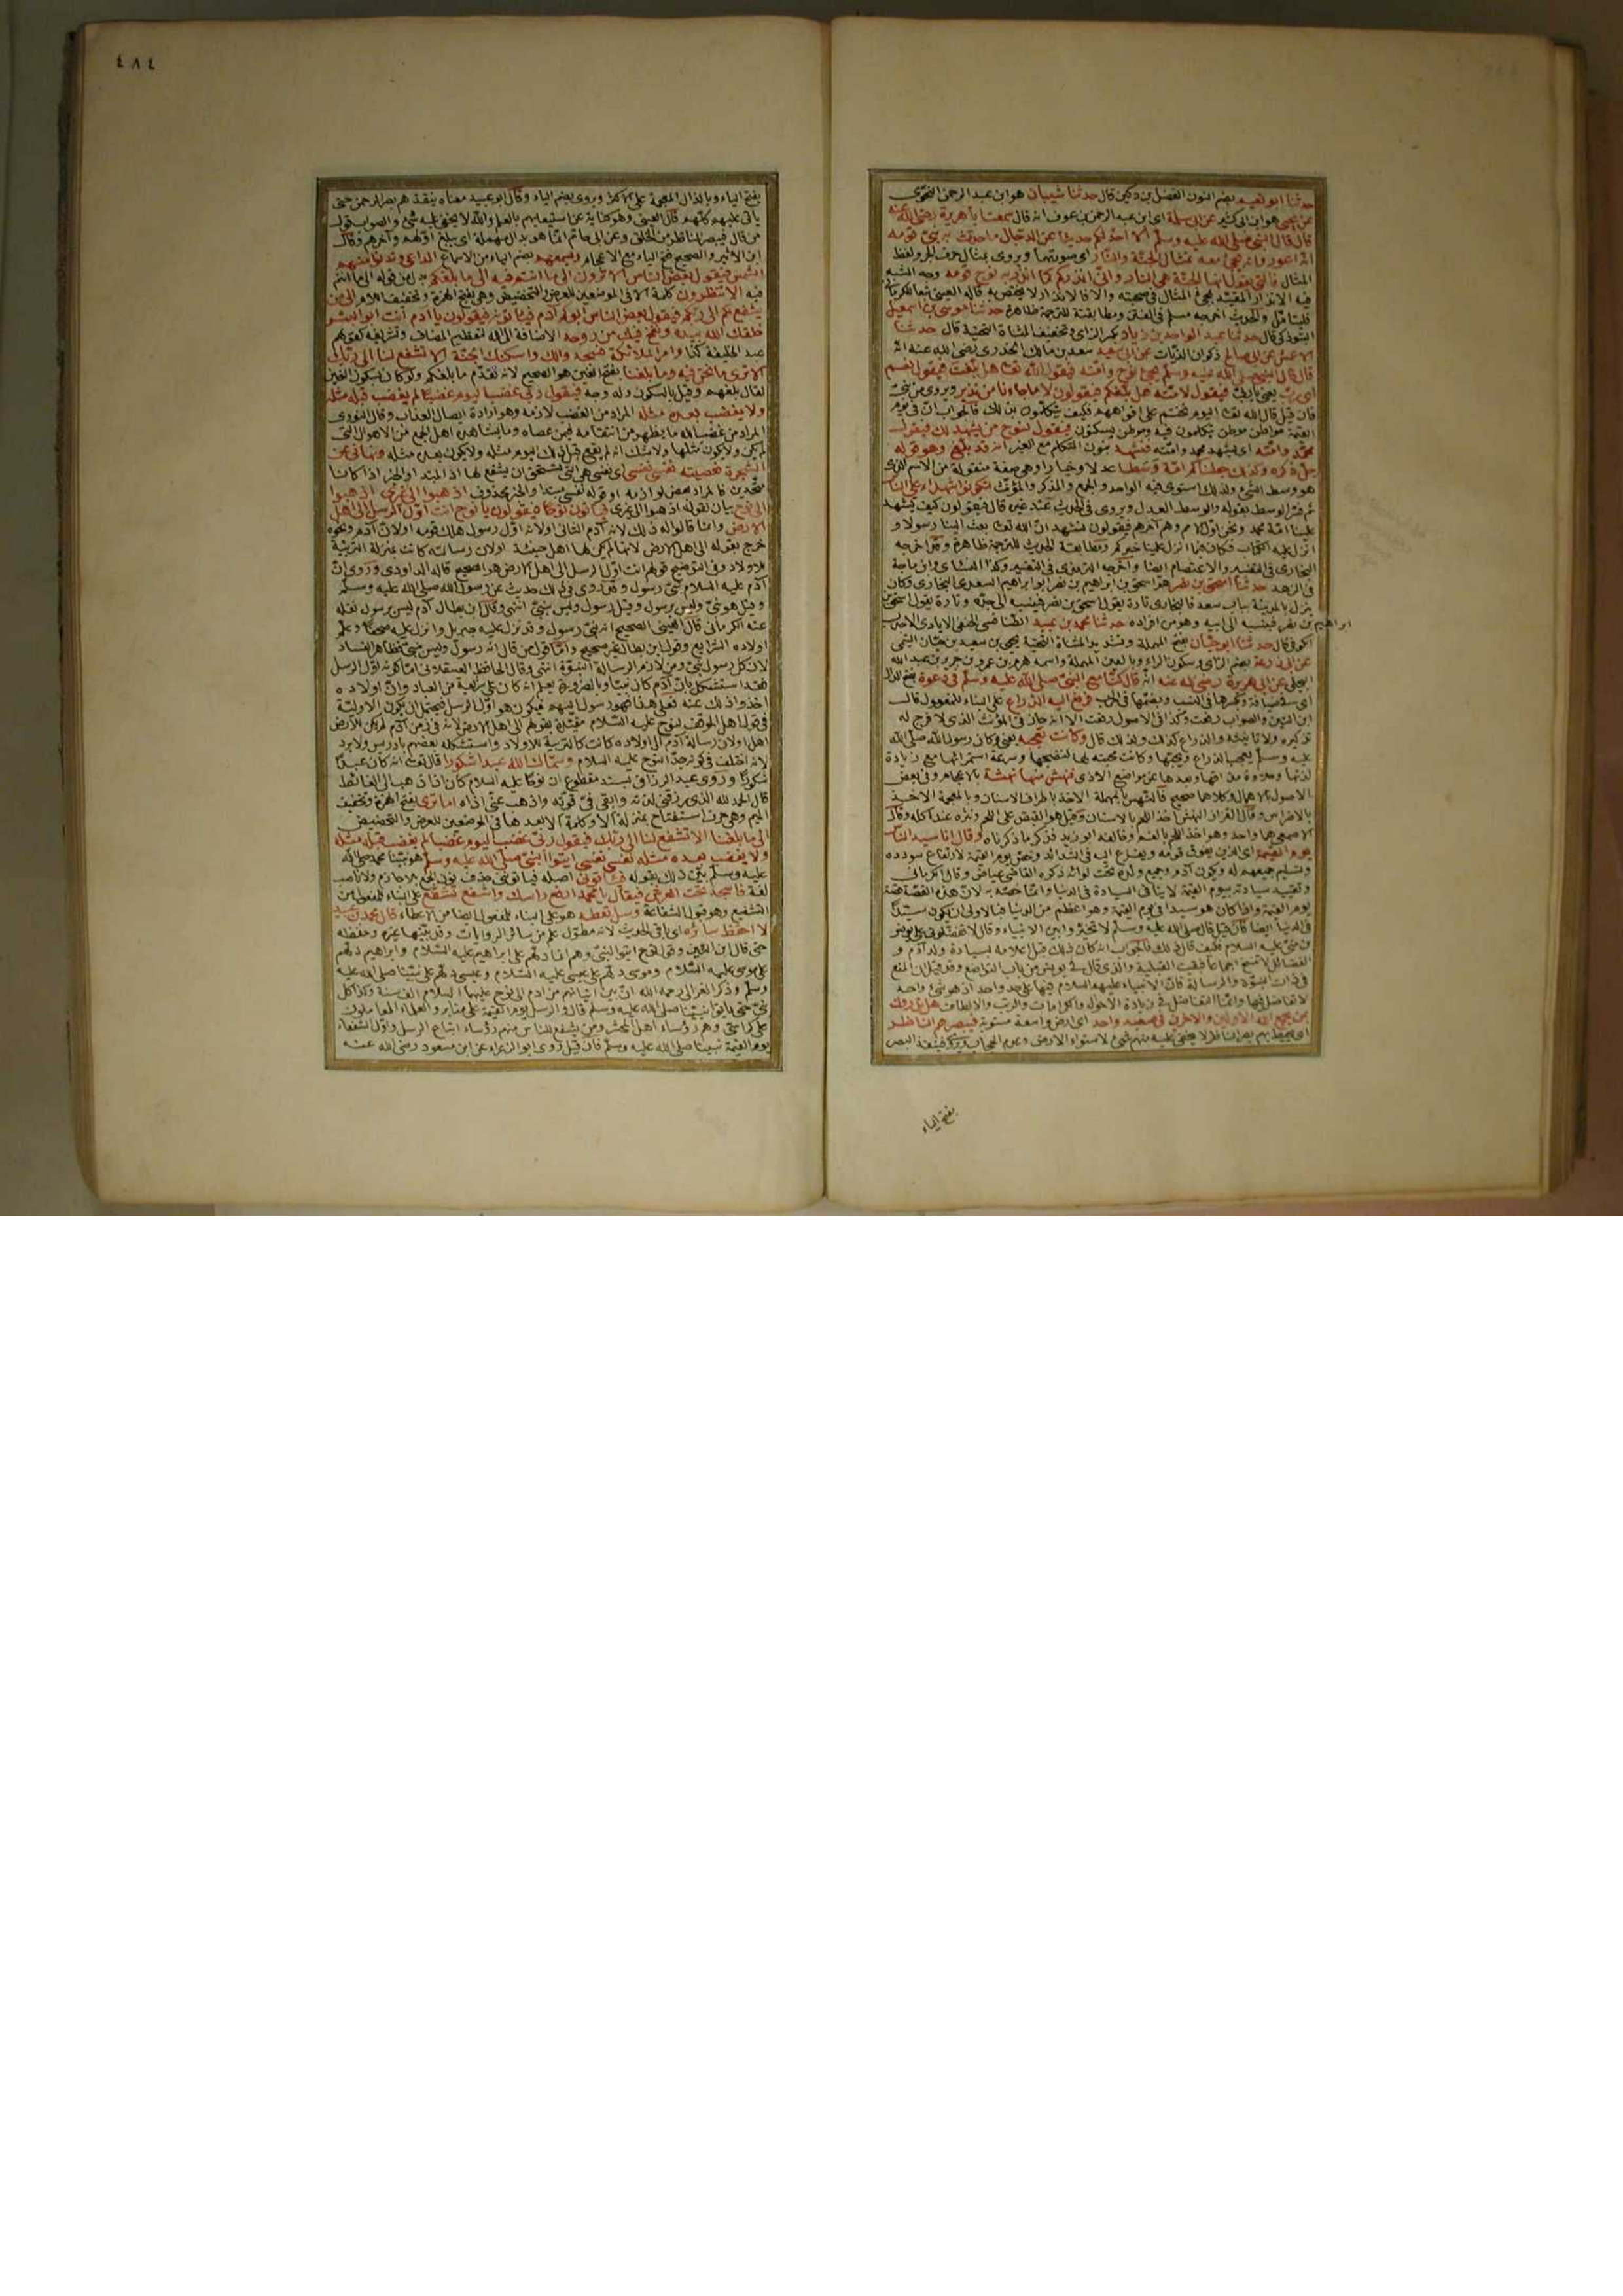 حدثنا ابو نعيم بضم النون الفضل بن دكين قال حدثنا شيبان هو ابن عبد الرحمن النحوى
عن يحيى هو ابن ابى كثير عن ابى سلة اى ابن عبد الرحمن بن عوف انه قال سمعت ابا هريرة رضى الله عنه
قال قال النبى صلى الله عليه وسلم الا احدثكم حديثا عن الدجال ما حدث به نبى قومه
انه اعور وانه يجئ معه بمثال الجنة والنار اى صورتهما ويروى بمثال حرف الجر ولفظ
المثال فالتى يقول انها الجنة هى النار وانى انذركم كما انذر به نوح قومه وجه الشبه
فيه الانذار المقيد بمجئ المثال فى صحبته والا فالانذار لا يختص به قاله العينى تبعا للكرمانى
فليتأمل والحديث اخرجه مسلم فى الفتن ومطابقته للترجمة ظاهرة حدثنا موسى بن اسمعيل
التبوذكى قال حدثنا عبد الواحد بن زياد بكسر الزاى وتخفيف المثناة التحتية قال حدثنا
الاعمش عن ابى صالح ذكوان الزيات عن ابى سعيد سعد بن مالك الخدرى رضى الله عنه انه
قال قال النبى صلى الله عليه وسلم يجئ نوح وامته فيقول الله تعا هل بلغت فيقول نعم
اى رب يعنى يا ربى فيقول لامته هل بلغكم فيقولون لا ما جاءنا من نذير ويروى من نبى
فان قيل قال الله تعا اليوم نختم على افواههم فكيف يتكلمون بذلك فالجواب ان فى يوم
القيمة مواطن موطن يتكلمون فيه وموطن يسكتون فيقول لنوح من يشهد لك فيقول
محمد وامته اى يشهد محمد وامته فنشهد بنون المتكلم مع الغير انه قد بلغ وهو قوله
جل ذكره وكذلك جعلناكم امة وسطا عدلا وخيارا وهى صفة منقولة من الاسم الذى
هو وسط الشئ ولذلك استوى فيه الواحد والجمع والمذكر والمؤنث لتكونوا شهداء على الناس
ثم فسر الوسط بقوله والوسط العدل ويروى فى الحديث عند غيره قال فيقولون كيف يشهد
علينا امة محمد ونحن اول الامم وهم آخرهم فيقولون نشهد ان الله تعا بعث الينا رسولا و
انزل عليه الكتاب فكان فيما انزل علينا خبركم ومطابقة الحديث للترجمة ظاهرة وقد اخرجه
البخارى فى التفسير والاعتصام ايضا واخرجه الترمذى فى التفسير وكذا النسائى وابن ماجة
فى الزهد حدثنا اسحق بن نصر هو اسحق بن ابراهيم بن نصر ابو ابراهيم السعدى البخارى وكان
ينزل بالمدينة بباب سعد فالبخارى تارة يقول اسحق بن نصر فينسبه الى جده وتارة يقول اسحق بن
ابراهيم بن نصر فينسبه الى ابيه وهو من افراده حدثنا محمد بن عبيد الطنافسى الحنفى الايادى الاحدب
الكوفى قال حدثنا ابو حيان بفتح المهملة وتشديد المثناة التحتية يحيى بن سعيد بن حيان التيمى
عن ابى زرعة بضم الزاى وسكون الراء وبالعين المهملة واسمه هرم بن عمرو بن جرير بن عبد الله
البجلى عن ابى هريرة رضى الله عنه انه قال كنا مع النبى صلى الله عليه وسلم فى دعوة بفتح الدال
اى فى ضيافة وبكسرها فى النسب وبضمها فى الحرب فرفع اليه الذراع على البناء للمفعول قال
ابن التين والصواب رفعت وكذا فى الاصول رفعت الا انه جاز فى المؤنث الذى لا فرج له
تذكيره وتأنيثه والذراع كذلك ولذلك قال وكانت تعجبه يعنى وكان رسول الله صلى الله
عليه وسلم يعجبه الذراع ويحبها وكانت محبته لها لنضجها وسرعة استمرائها مع زيادة
لذتها وحلاوة مذاقها وبعدها عن مواضع الاذى فنهس منها نهسة بالاعجام وفى بعض
الاصول بالاهمال وكلاهما صحيح فالنهس بالمهملة الاخذ باطراف الاسنان وبالمعجمة الاخذ
بالاضراس وقال القزاز النهش اخذ اللحم بالاسنان وقيل هو القبض على اللحم ونتره عند اكله وقال
الاصمعى هما واحد وهو اخذ اللحم بالفم وخالفه ابو زيد فذكر ما ذكرناه وقال انا سيد الناس
يوم القيمة اى الذى يفوق قومه ويفزع اليه فى الشدائد وخص يوم القيمة لارتفاع سودده
وتسليم جميعهم له وكون آدم وجميع ولده تحت لوائه ذكره القاضى عياض وقال الكرمانى
وتقييد سيادته بيوم القيمة لا ينافى السيادة فى الدنيا وانما خصه به لان هذه القصة قصة
يوم القيمة واذا كان هو سيدا فى يوم القيمة وهو اعظم من الدنيا فبالاولى ان يكون سيدا
فى الدنيا ايضا فان قيل قال صلى الله عليه وسلم لا تخيروا بين الانبياء وقال لا تفضلونى على يونس
بن متى عليه السلام فكيف قال ذلك فالجواب انه كان ذلك قبل اعلامه بسيادة ولد آدم و
الفضائل لا تنسخ اجماعا فبقيت القبلية والذى قال فى يونس من باب التواضع وقد قيل ان المنع
فى ذات النبوة والرسالة فان الانبياء عليهم السلام فيها على حد واحد اذ هو شئ واحد
لا تفاضل فيها وانما التفاضل فى زيادة الاحوال والكرامات والرتب والالطاف هل تدرون
بمن يجمع الله الاولين والآخرين فى صعيد واحد اى ارض واسعة مستوية فيبصرهم الناظر
اى يحيط بهم بصر الناظر لا يخفى عليه منهم شئ لاستواء الارض وعدم الحجاب ويروى فينفذ البصر
بفتح الياء
٤٨٤
بفتح الياء وبالذال المعجمة على الاكثر ويروى بضم الياء وقال ابو عبيد معناه ينفذهم بصر الرحمن حتى
يأتى عليهم كلهم قال العينى وهو كناية عن استيعابهم بالعلم والله لا يخفى عليه شئ والصواب قول
من قال فيبصر الناظر من الخلق وعن ابى حاتم انما هو بدال مهملة اى يبلغ اولهم وآخرهم وقال
ابن الاثير والصحيح فتح الياء مع الاعجام ويسمعهم بضم الياء من الاسماع الداعى وتدنو منهم
الشمس فيقول بعض الناس الا ترون الى ما انتم فيه الى ما بلغكم بدل من قوله الى ما انتم
فيه الا تنظرون كلمة الا فى الموضعين للعرض والتحضيض وهى بفتح الهمزة وتخفيف اللام الى من
يشفع لكم الى ربكم فيقول بعض الناس ابوكم آدم فيأتونه فيقولون يا آدم انت ابو البشر
خلقك الله بيده ونفخ فيك من روحه الاضافة الى الله لتعظيم المضاف وتشريفه كقولهم
عبد الخليفة كذا وامر الملائكة فسجدوا لك واسكنك الجنة الا تشفع لنا الى ربك
الا ترى ما نحن فيه وما بلغنا بفتح الغين هو الصحيح لانه تقدم ما بلغكم ولو كان بسكون الغين
لقال بلغهم وقيل بالسكون وله وجه فيقول ربى غضب اليوم غضبا لم يغضب قبله مثله
ولا يغضب بعده مثله المراد من الغضب لازمه وهو ارادة ايصال العذاب وقال النووى
المراد من غضب الله ما يظهر من انتقامه فيمن عصاه وما يشاهده اهل الجمع من الاهوال التى
لم يكن ولا يكون مثلها ولا شك انه لم يقع قبل ذلك اليوم مثله ولا يكون بعده مثله ونهانى عن
الشجرة فعصيته نفسى نفسى اى نفسى هى التى تستحق ان يشفع لها اذ المبتدا والخبر اذا كانا
متحدين فالمراد بعض لوازمه او قوله نفسى مبتدا والخبر محذوف اذهبوا الى غيرى اذهبوا
الى نوح بيان لقوله اذهبوا الى غيرى فيأتون نوحا فيقولون يا نوح انت اول الرسل الى اهل
الارض وانما قالوا له ذلك لانه آدم الثانى او لانه اول رسول هلك قومه او لان آدم ونحوه
خرج بقوله الى اهل الارض لانها لم يكن لها اهل حينئذ او لان رسالته كانت بمنزلة التربية
للاولاد وفى التوضيح قولهم انت اول الرسل الى اهل الارض هو الصحيح قاله الداودى وروى ان
آدم عليه السلام نبى رسول وقد روى فى ذلك حديث عن رسول الله صلى الله عليه وسلم
وقيل هو نبى وليس برسول وقيل رسول وليس بنبى انتهى وقال ابن بطال آدم ليس برسول نقله
عنه الكرمانى قال العينى الصحيح انه نبى رسول وقد نزل عليه جبريل وانزل عليه صحفا وعلم
اولاده الشرايع وقول ابن بطال غير صحيح واما قول من قال انه رسول وليس بنبى فظاهر الفساد
لان كل رسول نبى ومن لازم الرسالة النبوة انتهى وقال الحافظ العسقلانى اما كونه اول الرسل
فقد استشكل بان آدم كان نبيا وبالضرورة يعلم انه كان على شريعة من العباد وان اولاده
اخذوا ذلك عنه فعلى هذا فهو رسول اليهم فيكون هو اول الرسل فيحتمل ان يكون الاولية
فى قول اهل الموقف لنوح عليه السلام مقيدة بقولهم الى اهل الارض لانه فى زمن آدم لم يكن للارض
اهل او لان رسالة آدم الى اولاده كانت كالتربية للاولاد واستشكله بعضهم بادريس ولا يرد
لانه اختلف فى كونه جد النوح عليه السلام وسماك الله عبدا شكورا قال تعا انه كان عبدا
شكورا وروى عبد الرزاق بسند مقطوع ان نوحا عليه السلام كان اذا ذهب الى الغائط
قال الحمد لله الذى رزقنى لذته وابقى فى قوته واذهب عنى اذاه اما ترى بفتح الهمزة وتخفيف
الميم وهى حرف استفتاح بمنزلة الا وكلمة الا بعدها فى الموضعين للعرض والتحضيض
الى ما بلغنا الا تشفع لنا الى ربك فيقول ربى غضب اليوم غضبا لم يغضب قبله مثله
ولا يغضب بعده مثله نفسى نفسى ايتوا النبى صلى الله عليه وسلم هو نبينا محمد صلى الله
عليه وسلم بين ذلك بقوله فيأتونى اصله فيأتوننى حذف نون الجمع بلا جازم ولا ناصب
لغة فاسجد تحت العرش فيقال يا محمد ارفع راسك واشفع تشفع على البناء للمفعول من
التشفيع وهو قبول الشفاعة وسل تعطه هو على البناء للمفعول ايضا من الاعطاء قال محمد بن عبيد
لا احفظ سائره اى باقى الحديث لانه مطول علم من سائر الروايات وقد بينها غيره وحفظه
حتى قال ابن التين وقول نوح ايتوا النبى وهم انما دلهم على ابراهيم عليه السلام وابراهيم دلهم
على موسى عليه السلام وموسى دلهم على عيسى عليه السلام وعيسى دلهم على نبينا صلى الله عليه
وسلم وذكر الغزالى رحمه الله ان بين اتيانهم من آدم الى نوح عليهما السلام الف سنة وكذا كل
نبى حتى يأتوا نبينا صلى الله عليه وسلم قال والرسل يوم القيمة على منابر والعلماء العاملون
على كراسى وهم رؤساء اهل المحشر ومن يشفع للناس منهم رؤساء اتباع الرسل واول الشفعاء
يوم القيمة نبينا صلى الله عليه وسلم فان قيل روى ابو الزعراء عن ابن مسعود رضى الله عنه